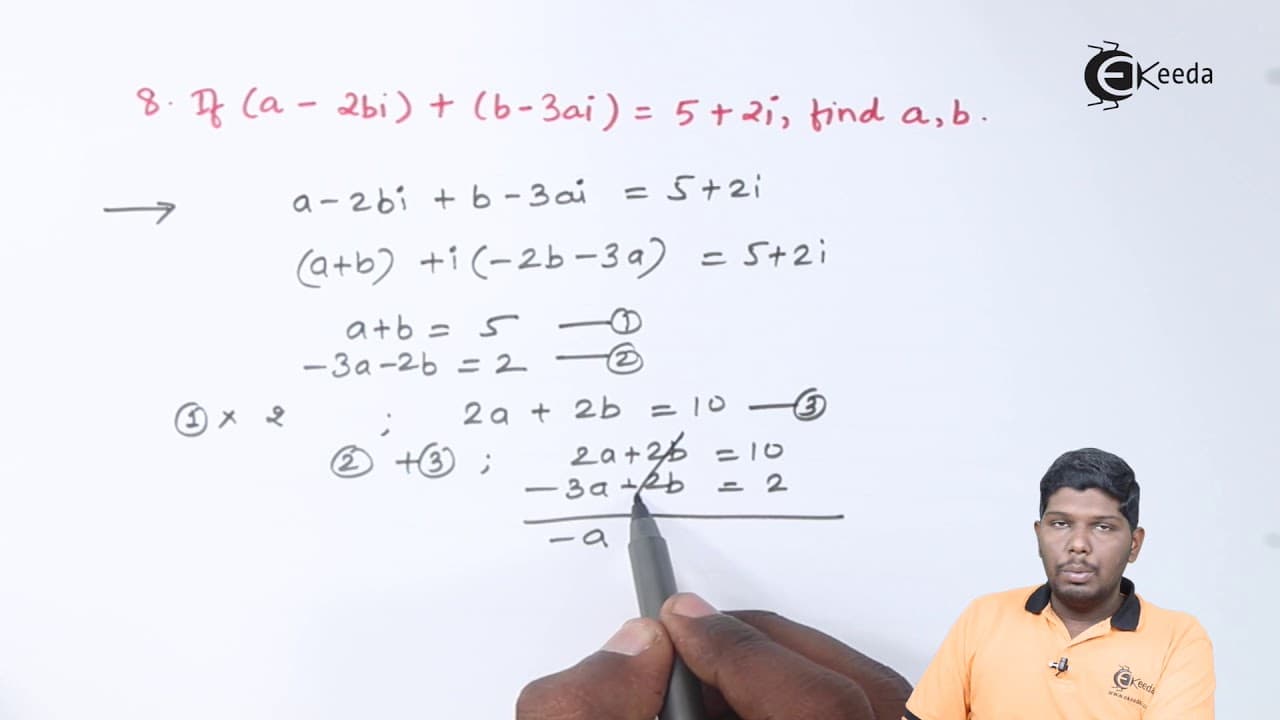 8. If (a - 2bi) + (b - 3ai) = 5 + 2i, find a, b.
EKeeda
→ a - 2bi + b - 3ai = 5 + 2i
(a+b) + i(-2b - 3a) = 5 + 2i
a + b = 5 — ①
-3a - 2b = 2 — ②
① × 2 ; 2a + 2b = 10 — ③
② + ③ ; 2a + 2b = 10
-3a - 2b = 2
-a
EKeeda